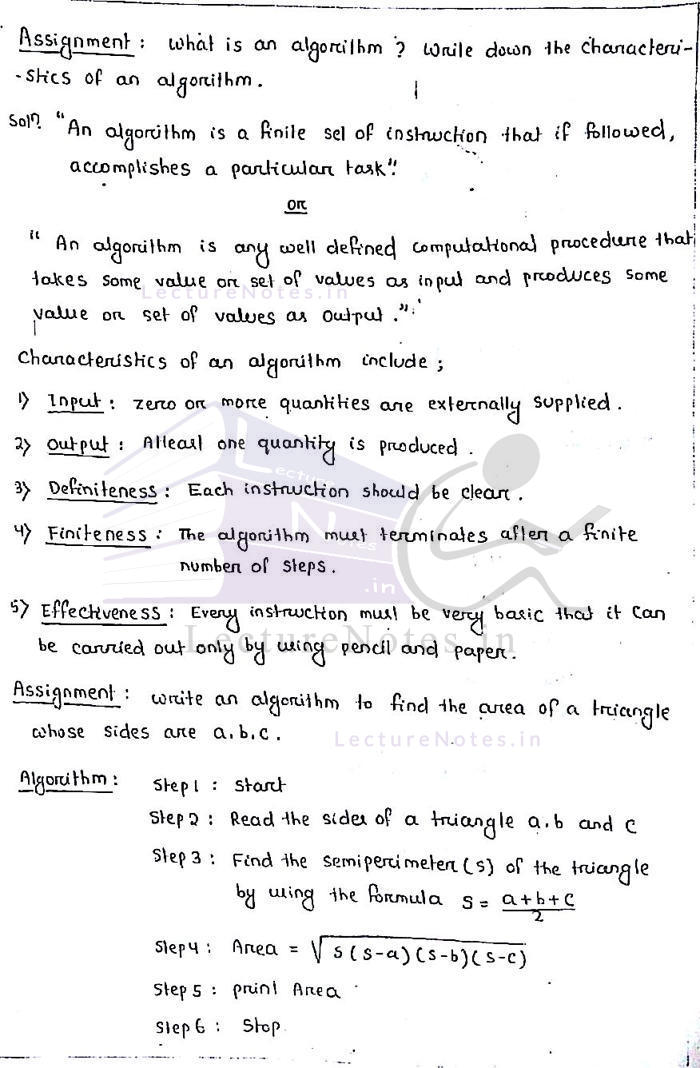 Assignment : What is an algorithm ? Write down the characteri-
-stics of an algorithm.
Soln. "An algorithm is a finite set of instruction that if followed,
accomplishes a particular task".
or
" An algorithm is any well defined computational procedure that
takes some value or set of values as input and produces some
LectureNotes.in
value or set of values as output ."
Characteristics of an algorithm include ;
1) Input : zero or more quantities are externally supplied .
2) Output : Atleast one quantity is produced .
Lecture
3) Definiteness : Each instruction should be clear .
Notes
4) Finiteness : The algorithm must terminates after a finite
number of steps .
.in
5) Effectiveness : Every instruction must be very basic that it can
be carried out only by using pencil and paper.
LectureNotes.in
Assignment : write an algorithm to find the area of a triangle
whose sides are a,b,c .
LectureNotes.in
Algorithm : Step 1 : Start
Step 2 : Read the sides of a triangle a,b and c
Step 3 : Find the semiperimeter (s) of the triangle
by using the formula s = a+b+c/2
Step 4 : Area = √s(s-a)(s-b)(s-c)
Step 5 : print Area
Step 6 : Stop